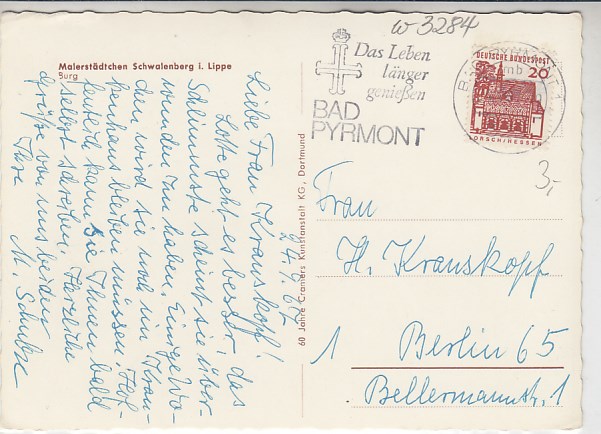 Malerstädtchen Schwalenberg i. Lippe
Burg
24.9.67
Liebe Frau Kranskopf!
Lotte geht es besser, das
Schlimmste scheint sie über-
wunden zu haben. Einige Wo-
chen wird sie noch im Kran-
kenhaus bleiben müssen. Hof-
fentlich kann sie Ihnen bald
selbst schreiben. Herzliche
Grüße von uns beiden
Ihre
M. Schulze
60 Jahre Cramers Kunstanstalt KG, Dortmund
w-3284
Das Leben
länger
genießen
BAD
PYRMONT
DEUTSCHE BUNDESPOST
20
LORSCH/HESSEN
mb
3,-
Frau
H. Kranskopf
1 Berlin 65
Bellermannstr. 1